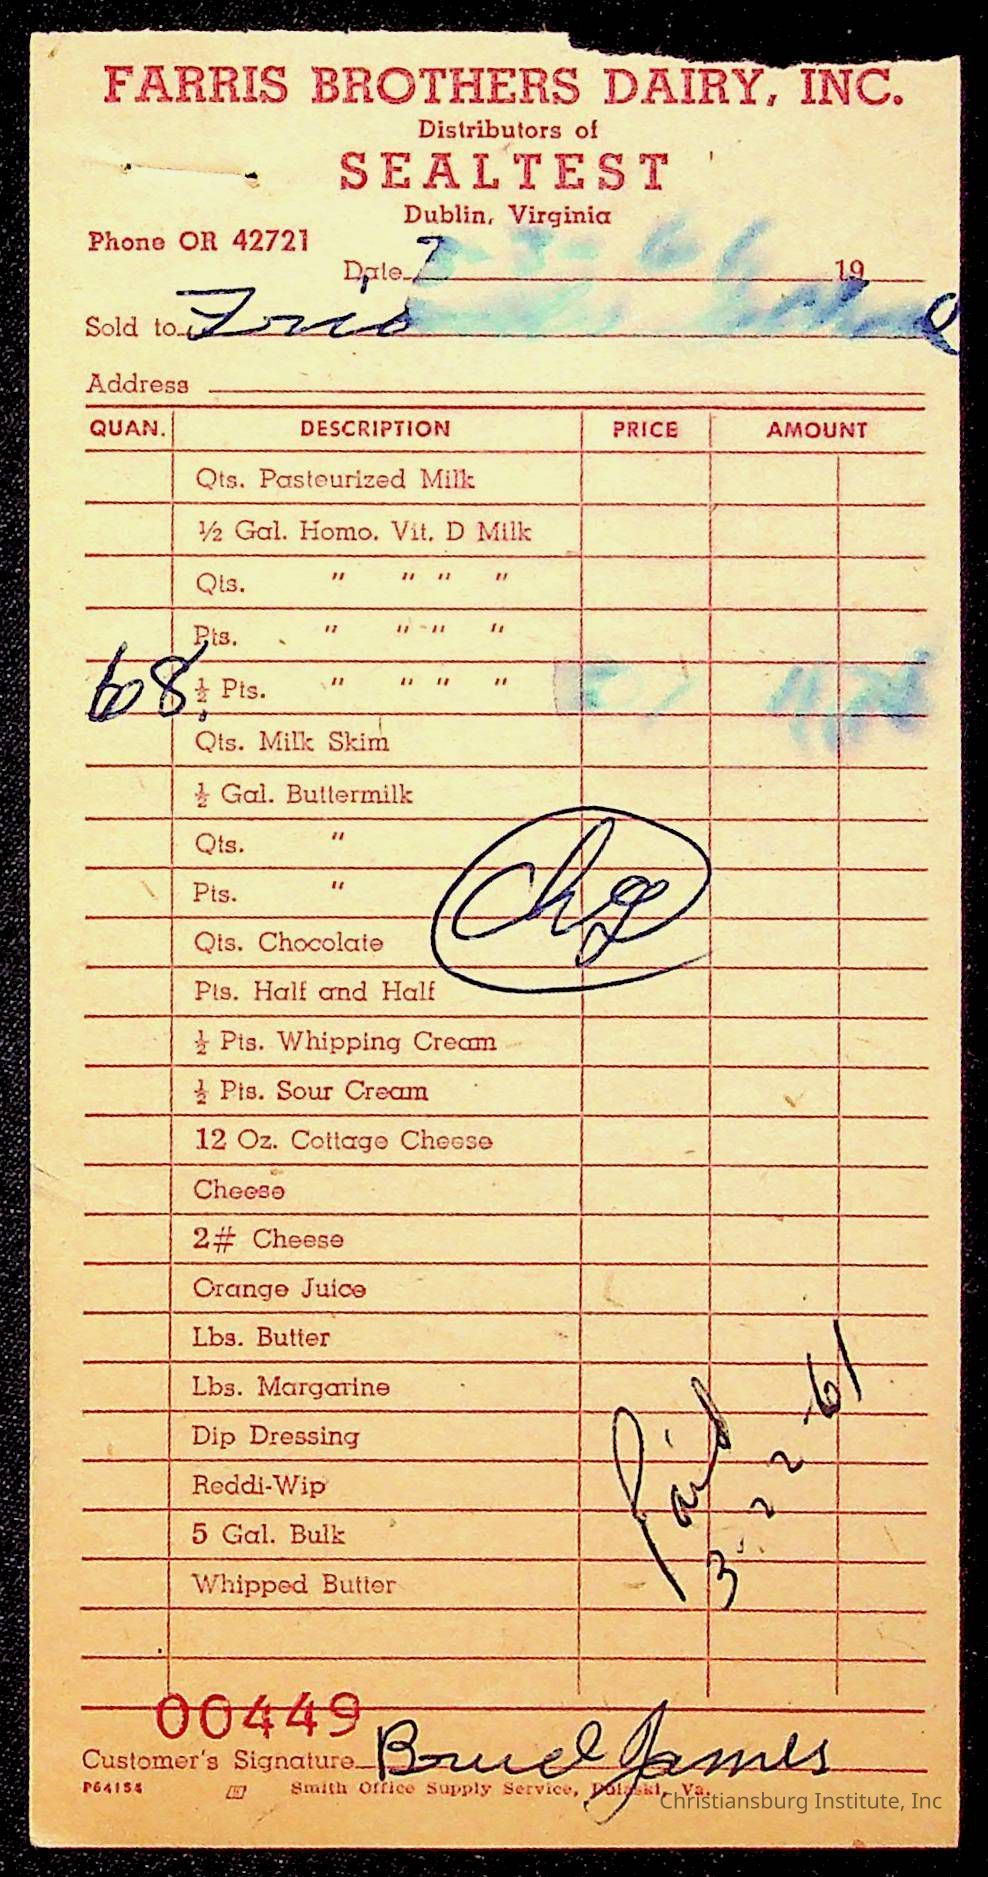 FARRIS BROTHERS DAIRY, INC.
Distributors of
SEALTEST
Dublin, Virginia
Phone OR 42721
Date 19
Sold to
Address
QUAN. DESCRIPTION PRICE AMOUNT
Qts. Pasteurized Milk
½ Gal. Homo. Vit. D Milk
Qts. " " " "
Pts. " " " "
68 ½ Pts. " " " "
Qts. Milk Skim
½ Gal. Buttermilk
Qts. "
Pts. "
chg
Qts. Chocolate
Pts. Half and Half
½ Pts. Whipping Cream
½ Pts. Sour Cream
12 Oz. Cottage Cheese
Cheese
2# Cheese
Orange Juice
Lbs. Butter
Lbs. Margarine
Dip Dressing
Reddi-Wip
5 Gal. Bulk
Whipped Butter
Paid
3-22-61
00449
Customer's Signature Bruce James
P64154 Smith Office Supply Service, Pulaski, Va.
Christiansburg Institute, Inc